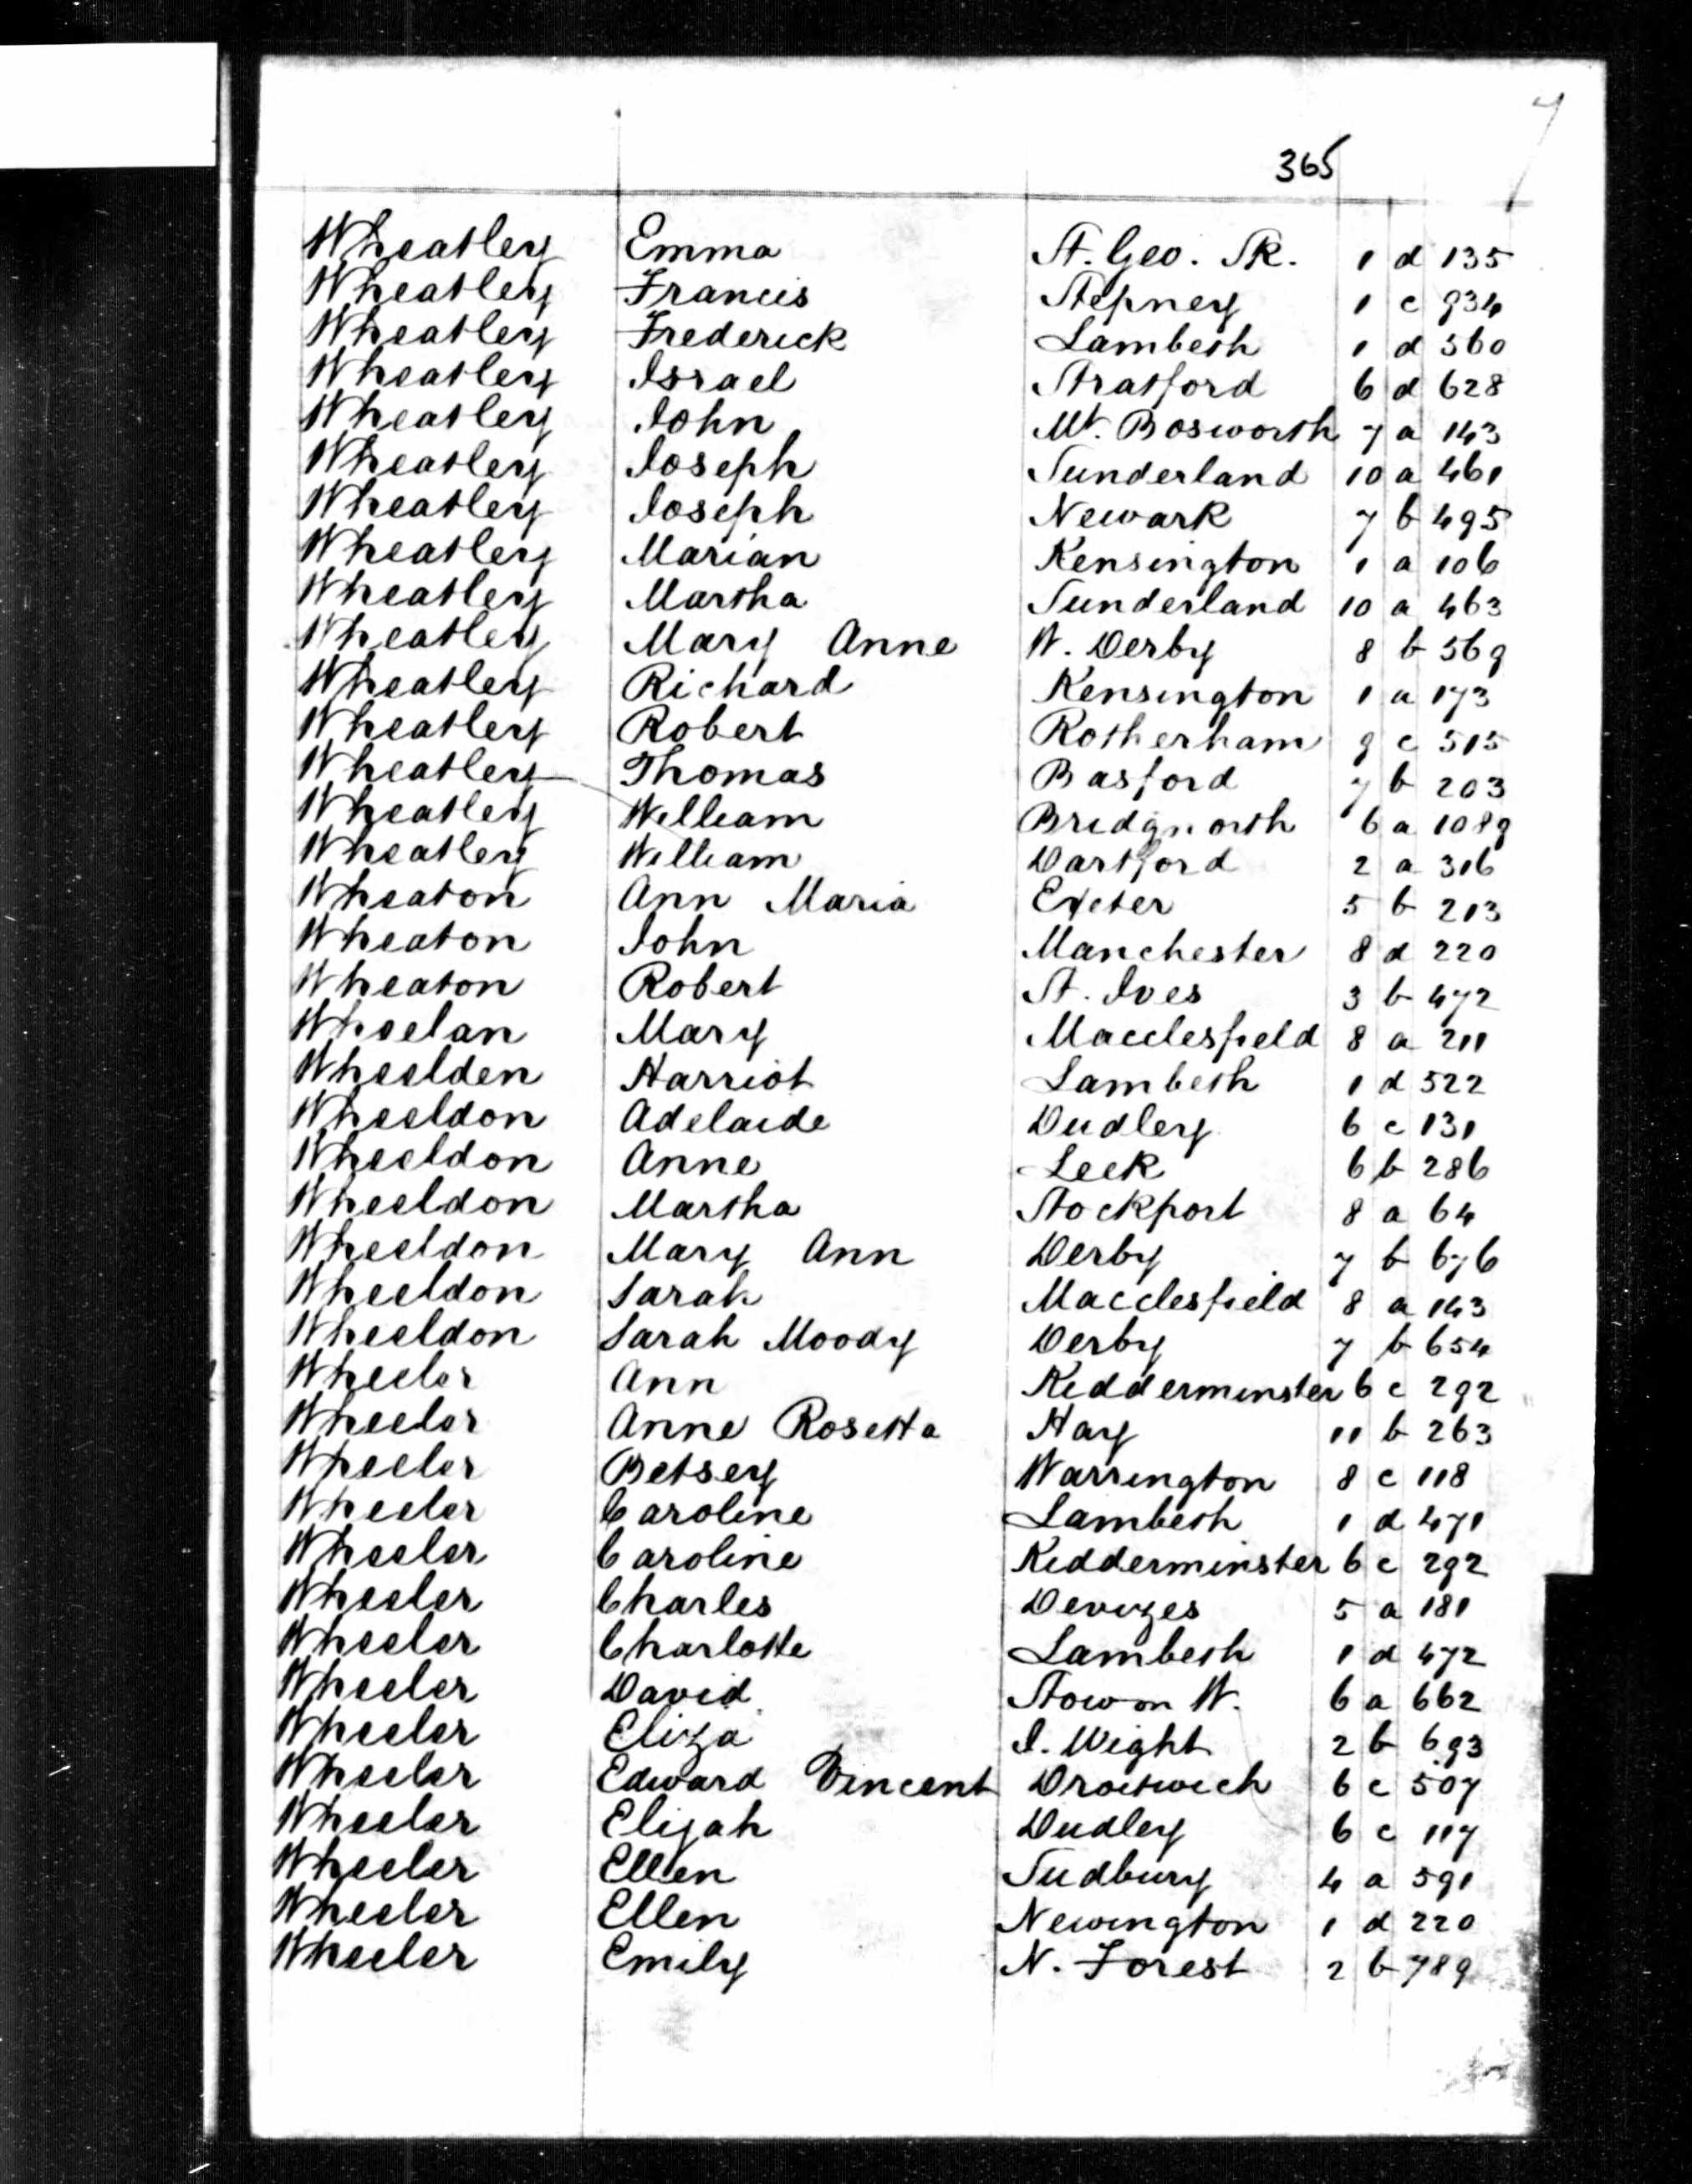 365
Wheatley Emma St. Geo. Sk. 1 d 135
Wheatley Francis Stepney 1 c 934
Wheatley Frederick Lambeth 1 d 360
Wheatley Israel Stratford 6 d 628
Wheatley John Mt. Bosworth 7 a 143
Wheatley Joseph Sunderland 10 a 461
Wheatley Joseph Newark 7 b 495
Wheatley Marian Kensington 1 a 106
Wheatley Martha Sunderland 10 a 463
Wheatley Mary Anne W. Derby 8 b 569
Wheatley Richard Kensington 1 a 173
Wheatley Robert Rotherham 9 c 515
Wheatley Thomas Basford 7 b 203
Wheatley William Bridgnorth 6 a 1089
Wheatley William Dartford 2 a 316
Wheaton Ann Maria Exeter 5 b 213
Wheaton John Manchester 8 d 220
Wheaton Robert St. Ives 3 b 472
Wheelan Mary Macclesfield 8 a 211
Wheelden Harriot Lambeth 1 d 522
Wheeldon Adelaide Dudley 6 c 131
Wheeldon Anne Leek 6 b 286
Wheeldon Martha Stockport 8 a 64
Wheeldon Mary Ann Derby 7 b 676
Wheeldon Sarah Macclesfield 8 a 143
Wheeldon Sarah Moody Derby 7 b 654
Wheeler Ann Kidderminster 6 c 292
Wheeler Anne Rosetta Hay 11 b 263
Wheeler Betsey Warrington 8 c 118
Wheeler Caroline Lambeth 1 d 471
Wheeler Caroline Kidderminster 6 c 292
Wheeler Charles Devizes 5 a 181
Wheeler Charlotte Lambeth 1 d 472
Wheeler David Stow on W. 6 a 662
Wheeler Eliza I. Wight 2 b 693
Wheeler Edward Vincent Droitwich 6 c 507
Wheeler Elijah Dudley 6 c 117
Wheeler Ellen Sudbury 4 a 591
Wheeler Ellen Newington 1 d 220
Wheeler Emily N. Forest 2 b 789